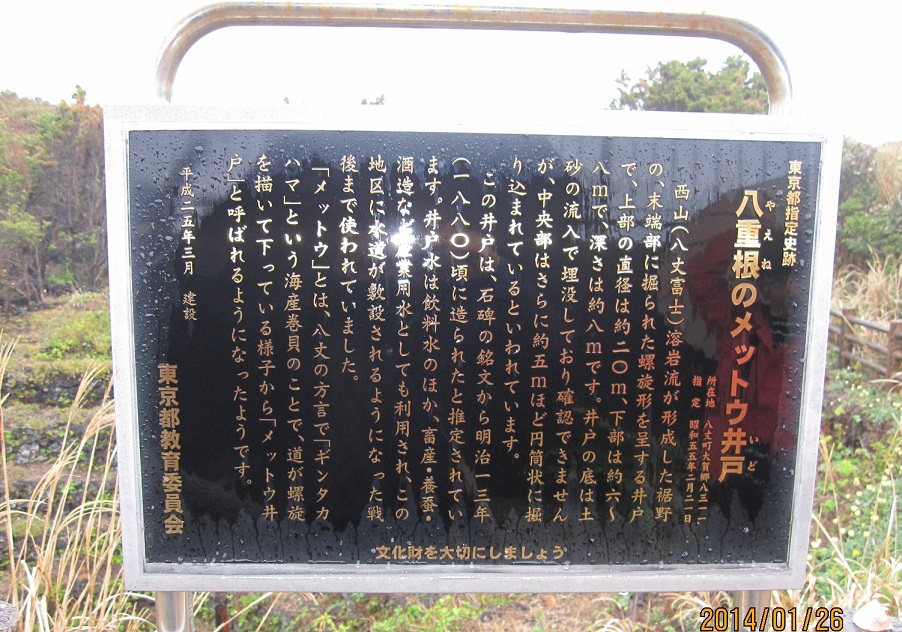 東京都指定史跡
八重根のメットウ井戸
やえね
いど
所在地 八丈町大賀郷八三一一
指定 昭和五五年二月二一日
西山(八丈富士)溶岩流が形成した裾野
の、末端部に掘られた螺旋形を呈する井戸
で、上部の直径は約二〇m、下部は約六〜
八mで、深さは約八mです。井戸の底は土
砂の流入で埋没しており確認できません
が、中央部はさらに約五mほど円筒状に掘
り込まれているといわれています。
この井戸は、石碑の銘文から明治一三年
(一八八〇)頃に造られたと推定されてい
ます。井戸水は飲料水のほか、畜産・養蚕・
酒造など産業用水としても利用され、この
地区に水道が敷設されるようになった戦
後まで使われていました。
「メットウ」とは、八丈の方言で「ギンタカ
ハマ」という海産巻貝のことで、道が螺旋
を描いて下っている様子から「メットウ井
戸」と呼ばれるようになったようです。
平成二五年三月 建設
東京都教育委員会
文化財を大切にしましょう
2014/01/26